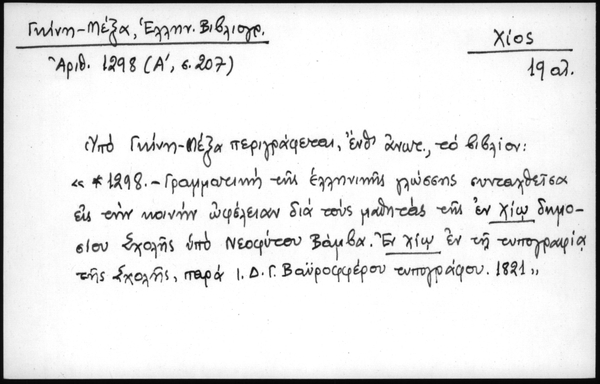 Γκίνη-Μέξα, Ἑλλην. Βιβλιογρ.
Χίος
Ἀριθ. 1298 (Α', σ. 207)
19 αἰ.
Ὑπό Γκίνη-Μέξα περιγράφεται, ἔνθ' ἀνωτ., τό βιβλίον:
« *1298. - Γραμματική τῆς ἑλληνικῆς γλώσσης συνταχθεῖσα
εἰς τήν κοινήν ὠφέλειαν διά τούς μαθητάς τῆς ἐν Χίῳ δημο-
σίου Σχολῆς ὑπό Νεοφύτου Βάμβα. Ἐν Χίῳ ἐν τῇ τυπογραφίᾳ
τῆς Σχολῆς, παρά Ι. Δ. Γ. Βαϋροφφέρου τυπογράφου. 1821 »